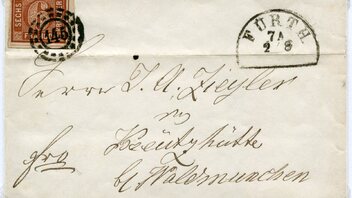 SECHS
145
FÜRTH
7A
2 8
Herrn J. A. Ziegler
in
Kreützhütte
frco
b/ Waldmunchen